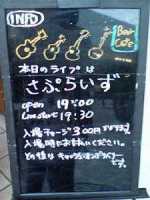 INFO
Bar
Cafe
本日のライブは
さぷらいず
open 19:00
Live start 19:30
入場チャージ300円
入場時にお支払いください。